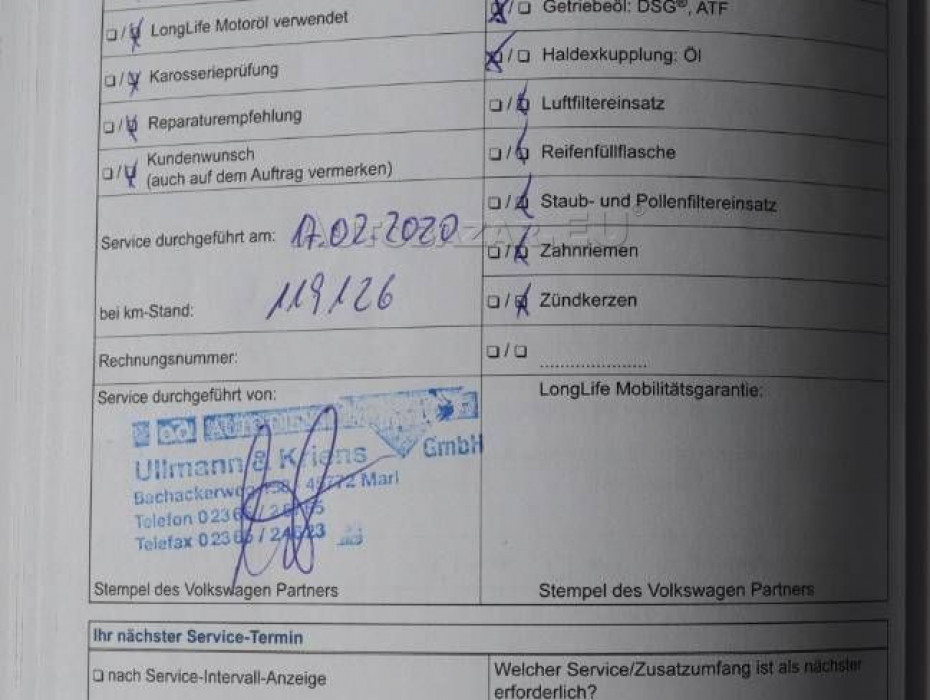 ☐/☒ LongLife Motoröl verwendet
☐/☒ Karosserieprüfung
☐/☒ Reparaturempfehlung
☐/☒ Kundenwunsch
(auch auf dem Auftrag vermerken)
Service durchgeführt am: 17.02.2020
bei km-Stand: 119126
Rechnungsnummer:
Service durchgeführt von:
Ullmann & Kriens GmbH
45772 Marl
Telefon
Telefax
Stempel des Volkswagen Partners
☒/☐ Getriebeöl: DSG®, ATF
☒/☐ Haldexkupplung: Öl
☐/☒ Luftfiltereinsatz
☐/☒ Reifenfüllflasche
☐/☒ Staub- und Pollenfiltereinsatz
☐/☒ Zahnriemen
☐/☒ Zündkerzen
☐/☐ .....................
LongLife Mobilitätsgarantie:
Stempel des Volkswagen Partners
Ihr nächster Service-Termin
☐ nach Service-Intervall-Anzeige
Welcher Service/Zusatzumfang ist als nächster
erforderlich?